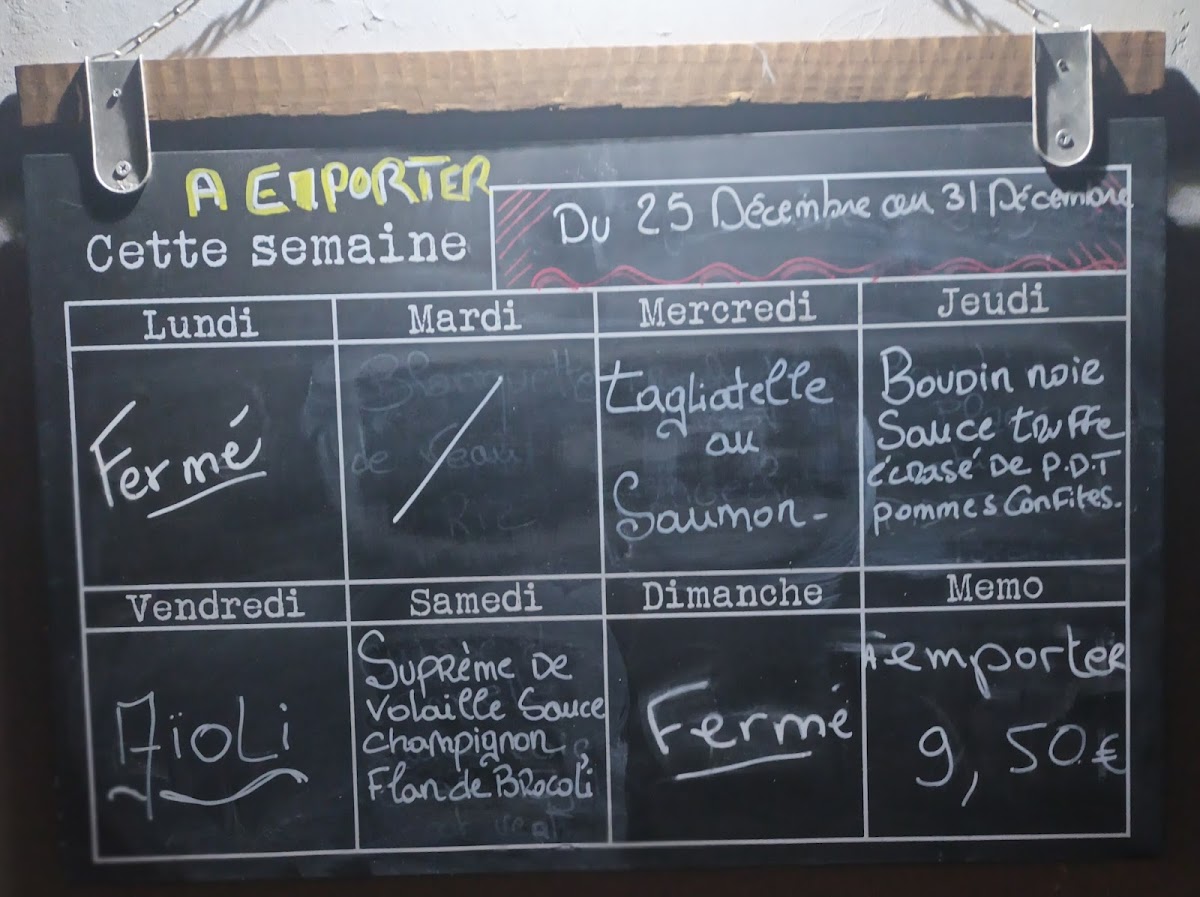 A EMPORTER
Cette semaine
Du 25 Décembre au 31 Décembre
Lundi
Mardi
Mercredi
Jeudi
Fermé
Tagliatelle
au
Saumon-
Boudin noie
Sauce truffe
écrasé De P.D.T
pommes Confites.
Vendredi
Samedi
Dimanche
Memo
Aïoli
Suprème De
Volaille Sauce
champignon
Flan de Brocoli
Fermé
A emporter
9,50€